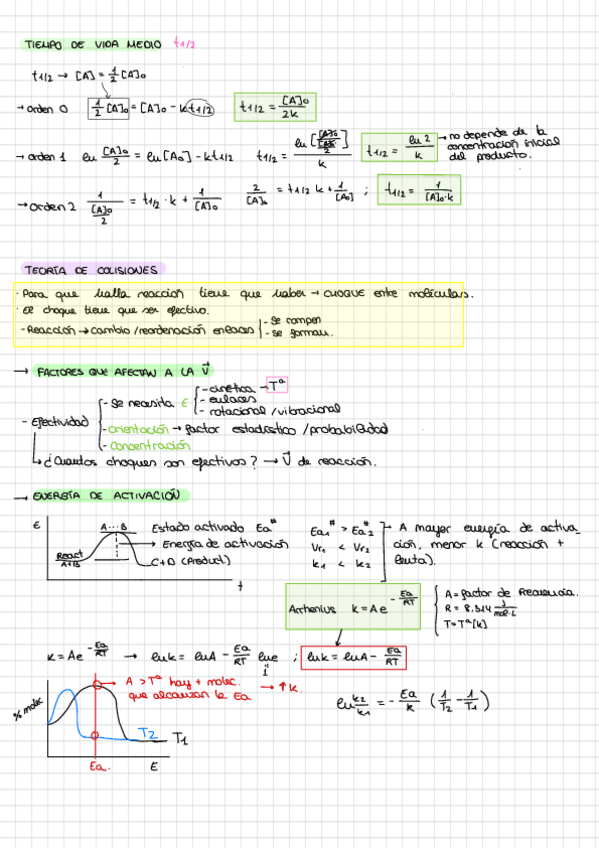 TIEMPO DE VIDA MEDIO t1/2
t1/2 → [A] = 1/2 [A]₀
→ orden 0 1/2 [A]₀ = [A]₀ - k t1/2 t1/2 = [A]₀/2k
→ orden 1 ln [A]₀/2 = ln[A₀] - kt1/2 t1/2 = ln [[A]₀/[A]₀/2]/k t1/2 = ln 2/k → no depende de la
concentración inicial
del producto.
→ orden 2 1/([A]₀/2) = t1/2 · k + 1/[A]₀ 2/[A]₀ = t1/2 k + 1/[A₀] ; t1/2 = 1/[A]₀·k
TEORÍA DE COLISIONES
· Para que halla reacción tiene que haber → CHOQUE entre moléculas.
· El choque tiene que ser efectivo.
- Reacción → cambio/reordenación enlaces - se rompen
- se forman.
→ FACTORES QUE AFECTAN A LA V⃗
- Efectividad - Se necesita E - cinética → Tª
- enlaces
- rotacional/vibracional
- orientación → factor estadístico/probabilidad
- concentración
↳ ¿Cuántos choques son efectivos? → V⃗ de reacción.
→ ENERGÍA DE ACTIVACIÓN
E A···B Estado activado Ea#
→ Energía de activación
React
A+B C+D (Product)
t
Ea₁# > Ea₂#
Vr₁ < Vr₂
k₁ < k₂
→ A mayor energía de activa-
ción, menor k (reacción +
lenta).
Arrhenius k = A e^-Ea/RT
A = factor de frecuencia.
R = 8.314 J/mol·L
T = Tª [K]
k = Ae^-Ea/RT → lnk = lnA - Ea/RT lne ; lnk = lnA - Ea/RT
1
% molec → A > Tª hay + molec.
que alcanzan la Ea → ↑ k.
T2 T1
Ea. E
ln k₂/k₁ = - Ea/k (1/T₂ - 1/T₁)